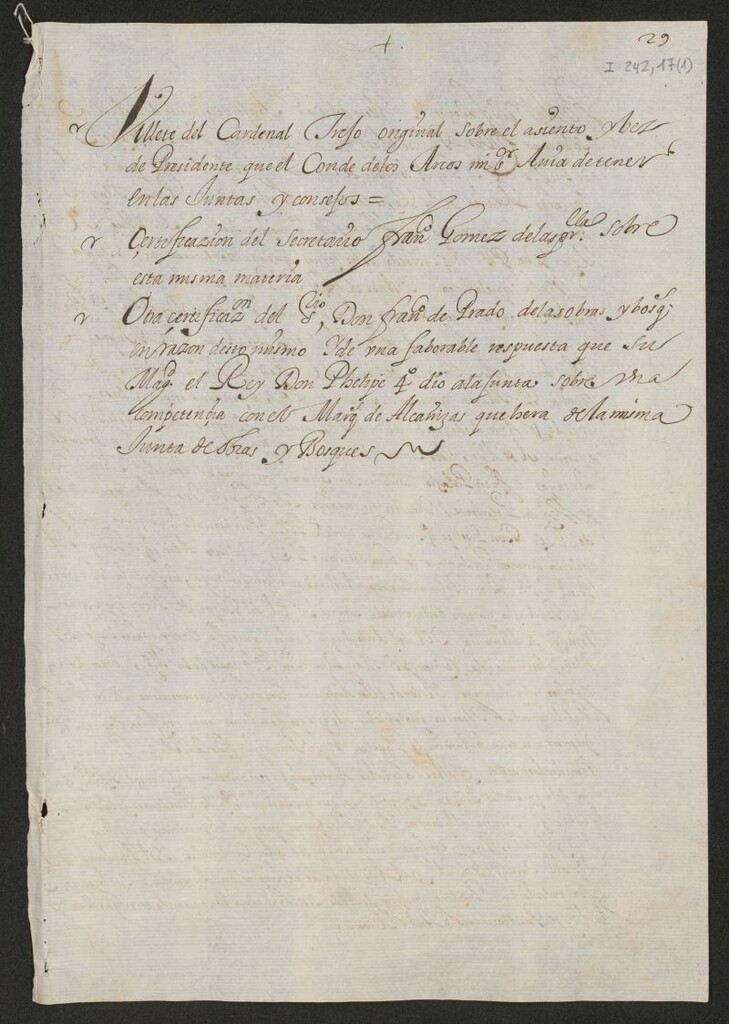 +.
29
I 242,17(1)
Villete del Cardenal Trejo original sobre el asiento y bez
de Presidente que el Conde delos Arcos mi s.or Auia de tener
en las Juntas y consejos =
Çertificazion del Secretario fran.co Gomez delasprilla sobre
esta misma materia
Otra çertificaz.on del s.rio, Don fran.co de Prado delas obras y bosq;
en razon desto mismo Y de vna faborable respuesta que su
Mag.d el Rey Don Phelipe 4.º dio ala junta sobre vna
competençia con el Marq.s de Alcañizas que hera de la misma
Junta de obras y Bosques